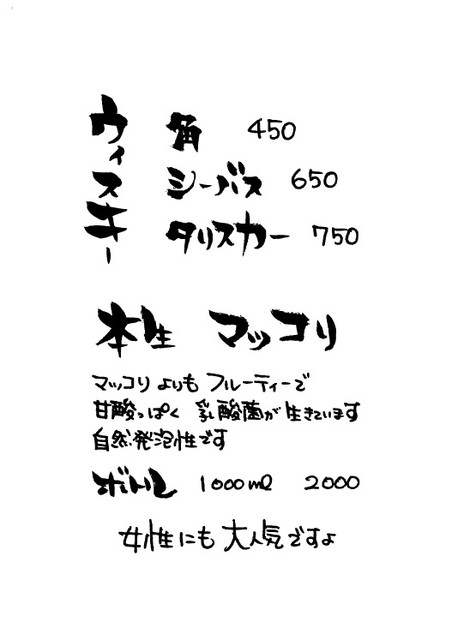 ウィスキー
角 450
シーバス 650
タリスカー 750
本生 マッコリ
マッコリよりもフルーティーで
甘酸っぱく 乳酸菌が生きています
自然発泡性です
ボトル 1000ml 2000
女性にも大人気ですよ